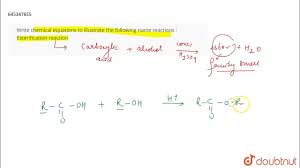 645347655
Write chemical equations to illustrate the following name reactions :
Esterification reaction
Carboxylic acid + alcohol conc H2SO4 ester + H2O
fruity smell
R-C-OH + R-OH H+ R-C-O-R
O O
doubtnut